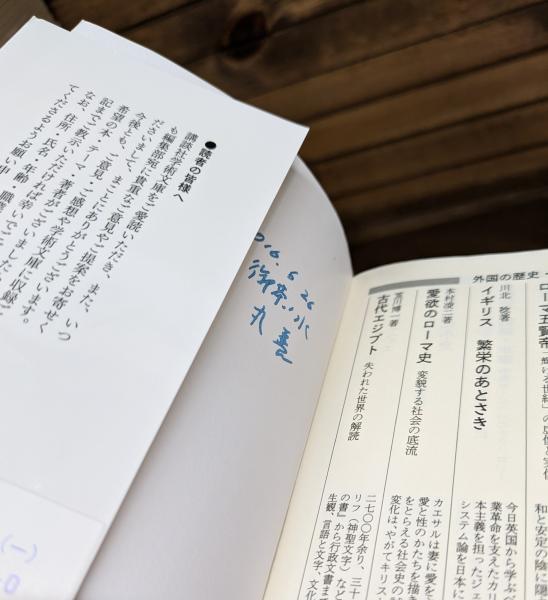 ●読者の皆様へ
講談社学術文庫をご愛読いただき、また、いつ
も編集部宛に貴重なご意見やご提案をお寄せく
ださいまして、まことにありがとうございます。
今後とも、ご意見・ご感想や学術文庫に収録ご
希望の本・テーマ・著者がございましたら
なお、住所・氏名・年齢・職業
てくださるようお願い申
6.26
御茶ノ水
丸善
外国の歴史
ローマ五賢帝 「輝ける世紀」の虚像と実像
和と安定の陰に隠
川北 稔著
イギリス 繁栄のあとさき
今日英国から学ぶべ
業革命を支えたカリ
本主義を担ったジェ
システム論を日本に
本村凌二著
愛欲のローマ史 変貌する社会の底流
カエサルは妻に愛を
愛と性のかたちを描き
をとらえる社会史の
変化は、やがてキリスト
笈川博一著
古代エジプト 失われた世界の解読
二七〇〇年余り、三十
リフ（神聖文字）など
の書』から行政文書まで
生観、言語と文字、文化
（一）